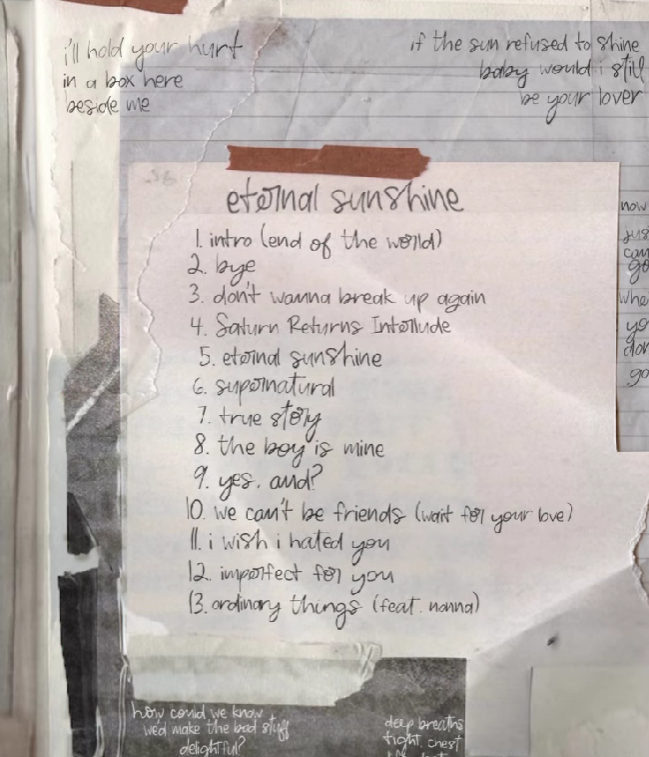 i'll hold your hurt
in a box here
beside me
if the sun refused to shine
baby would i still
be your lover
eternal sunshine
1. intro (end of the world)
2. bye
3. don't wanna break up again
4. Saturn Returns Interlude
5. eternal sunshine
6. supernatural
7. true story
8. the boy is mine
9. yes, and?
10. we can't be friends (wait for your love)
11. i wish i hated you
12. imperfect for you
13. ordinary things (feat. nonna)
now
you
go
how could we know
we'd make the bad stuff
delightful?
deep breaths
tight chest